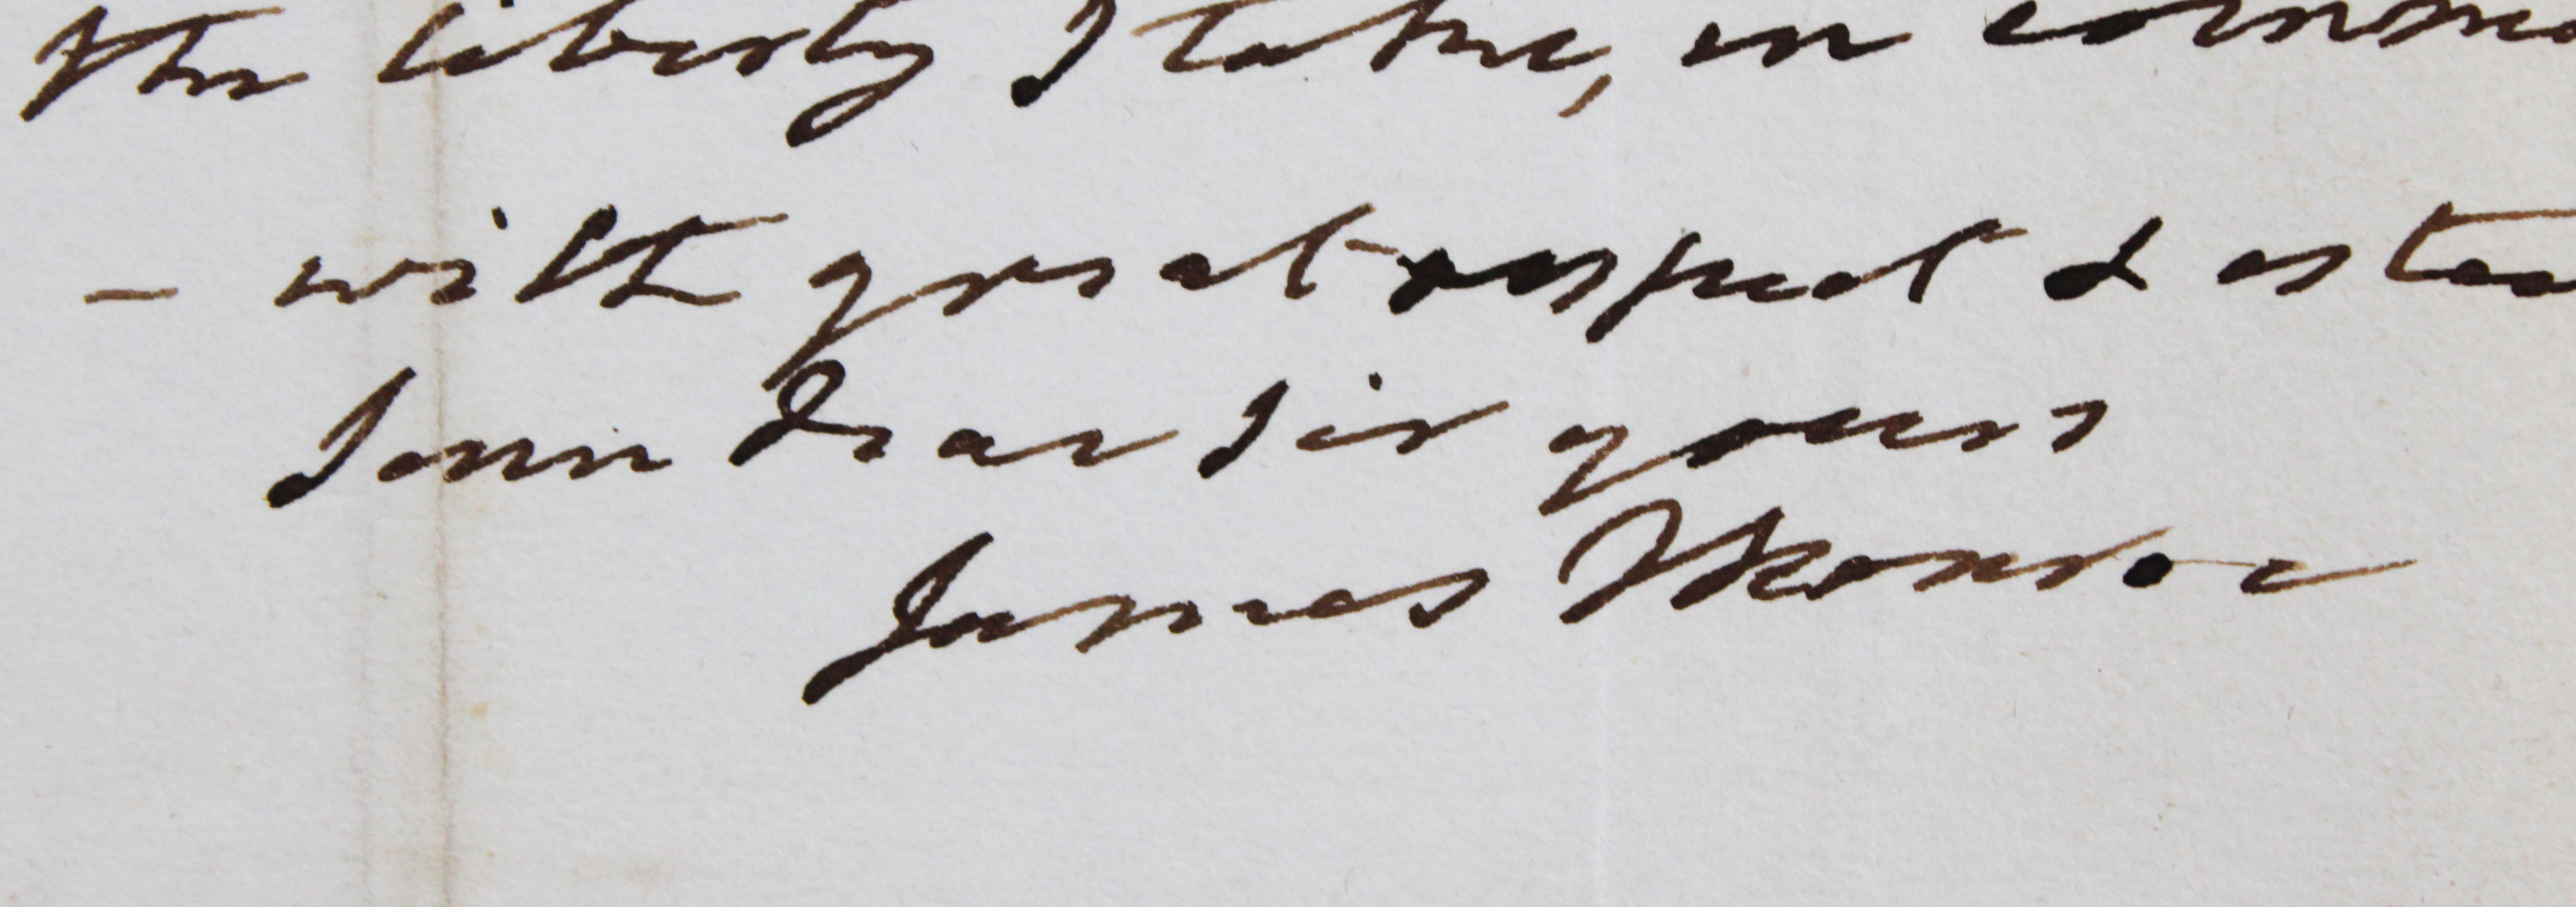 the liberty I take, in comm
- with great respect & estee
I am dear Sir yours
James Monroe